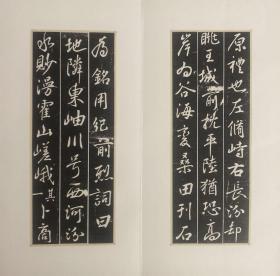 原禮也左脩崎右長汾却
眺王城前枕平陸猶恐高
岸為谷海變桑田刊石
為銘用紀前烈詞曰
地隣東岫川号西河汾
水眇漫霍山嵯峨其一卜商